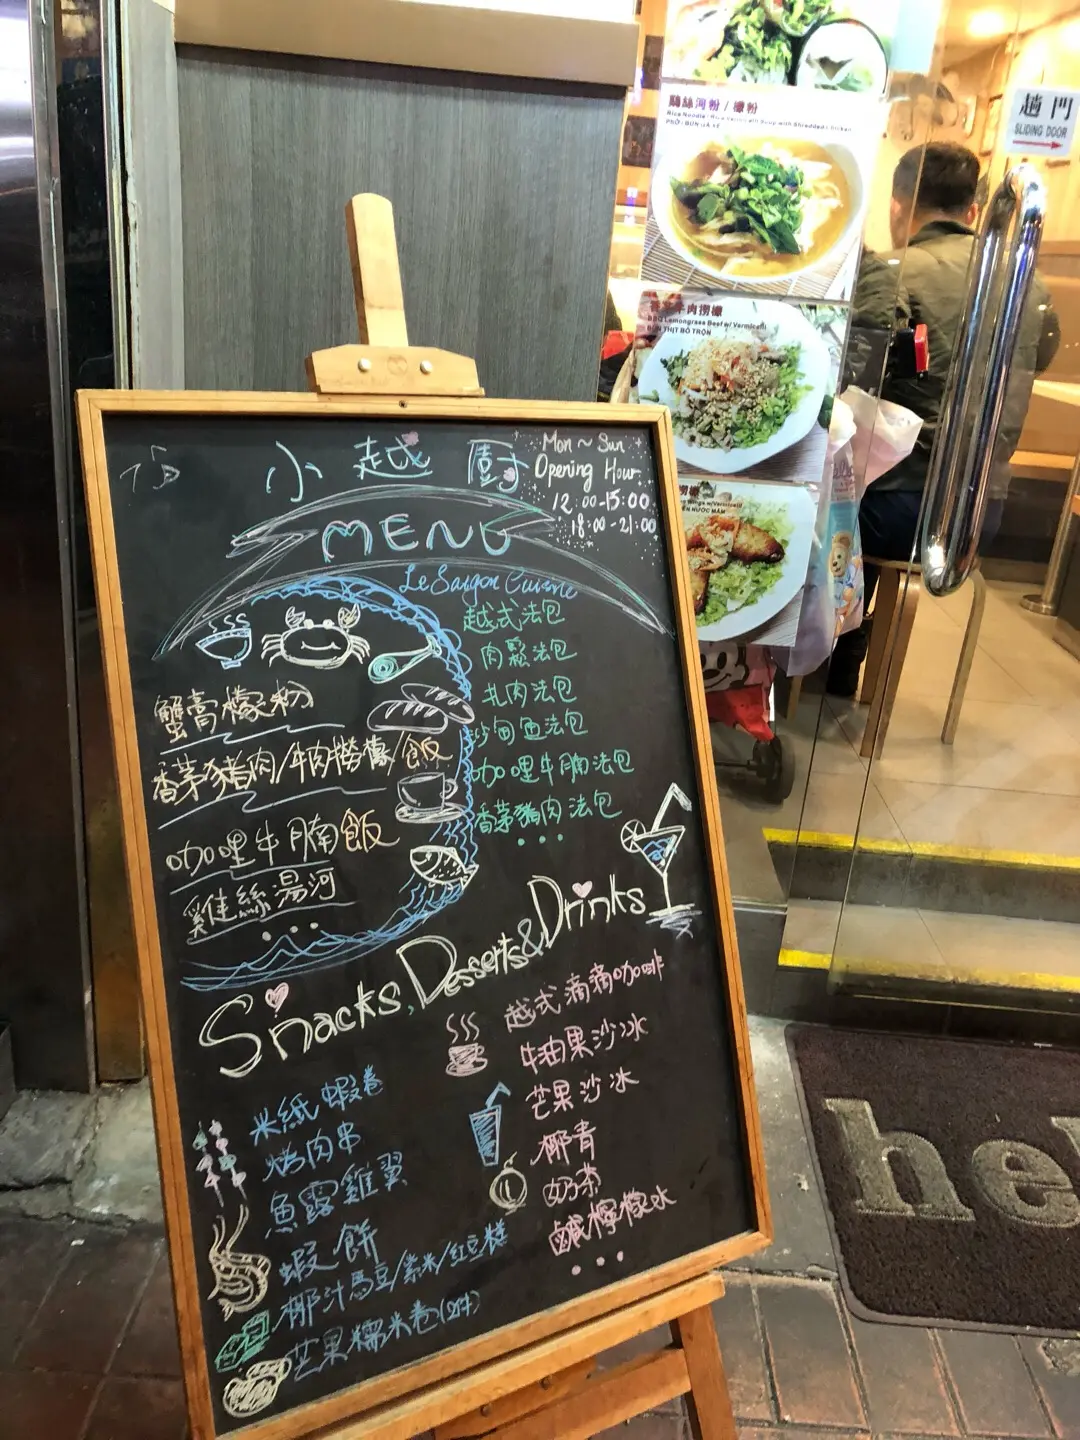 小越廚
Mon ~ Sun
Opening Hour
12:00-15:00
18:00-21:00
MENU
Le Saigon Cuisine
蟹膏檬粉
香茅豬肉/牛肉撈檬/飯
咖哩牛腩飯
雞絲湯河
...
越式法包
肉鬆法包
扎肉法包
沙甸魚法包
咖哩牛腩法包
香茅豬肉法包
...
Snacks, Desserts & Drinks
米紙蝦卷
烤肉串
魚露雞翼
蝦餅
椰汁馬豆/紫米/紅豆糕
芒果糯米卷(2件)
越式滴滴咖啡
牛油果沙冰
芒果沙冰
椰青
奶茶
鹹檸檬水
...
鷄絲河粉 / 檬粉
Rice Noodle / Rice Vermicelli Soup with Shredded Chicken
PHỞ / BÚN GÀ XÉ
香茅牛肉撈檬
BBQ Lemongrass Beef w/ Vermicelli
BÚN THỊT BÒ TRỘN
撈檬
Wings w/Vermicelli
NƯỚC MẮM
趟門
SLIDING DOOR
hel